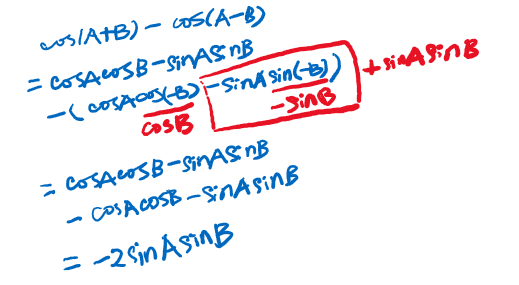 cos(A+B) - cos(A-B)
= cosAcosB - sinAsinB
-(cosAcos(-B) - sinAsin(-B)) + sinAsinB
cosB -sinB
= cosAcosB - sinAsinB
- cosAcosB - sinAsinB
= -2sinAsinB